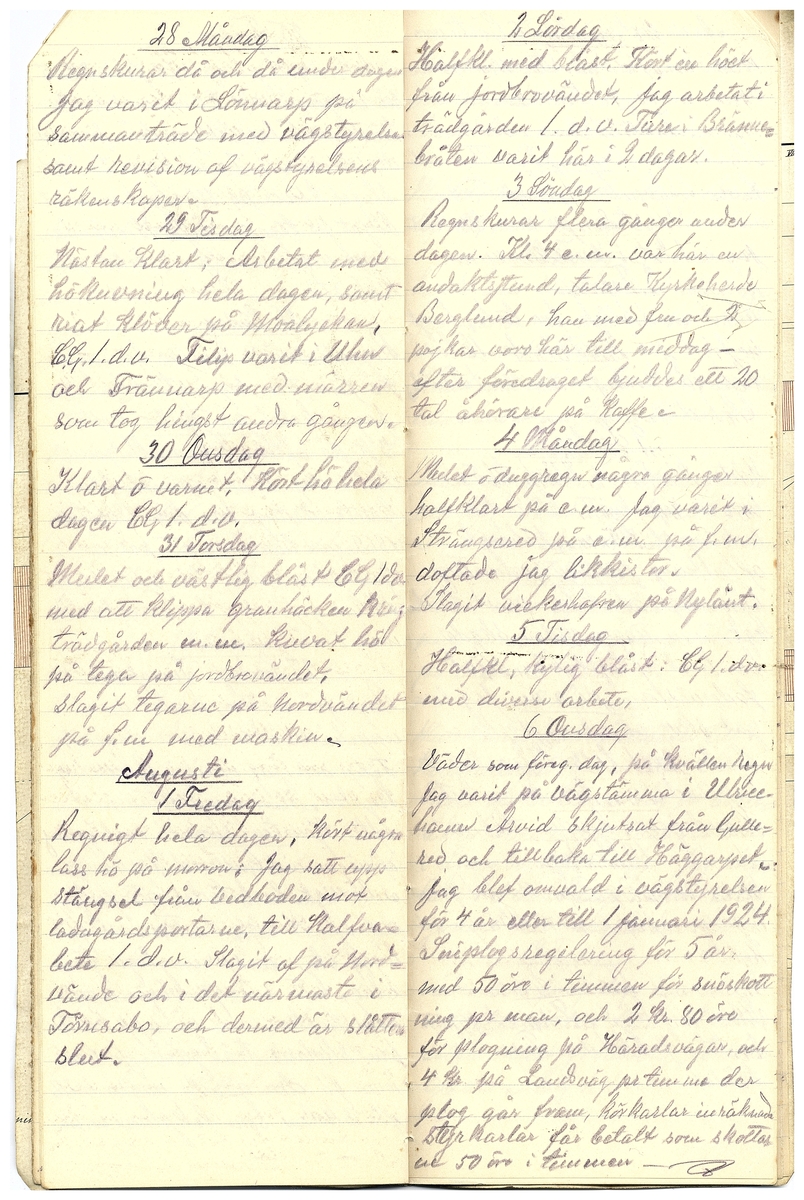 28 Måndag
Regnskurar då och då under dagen
jag varit i Lönnarp på
sammanträde med vägstyrelsen
samt revision af vägstyrelsens
räkenskaper.
29 Tisdag
Nästan klart; Arbetat med
hökuvning hela dagen, samt
kiat klöver på Moalyckan,
CG. 1. d.v. Filip varit i Uhn
och Trännarp med märren
som tog hingst andra gången.
30 Onsdag
Klart o varmt. Kört hö hela
dagen CG 1. d.v.
31 Torsdag
Mulet och västlig blåst CG 1 dv
med att klippa granhäcken kring
trädgården m.m. Kuvat hö
på tegar på jordbrovändet,
slagit tegarne på Nordvändet
på f.m med maskin.
Augusti
1 Fredag
Regnigt hela dagen, kört några
lass hö på morron; Jag satt upp
stängsel från vedboden mot
ladugårdsportarne, till Kalfva-
bete 1. d.v. Slagit af på Nord=
vände och i det närmaste i
Törnsabo, och dermed är slåttern
slut.
2 Lördag
Halfkl. med blåst. Kört in höet
från jordbrovändet, jag arbetat i
trädgården 1. d.v. Ture i Bränne=
bråten varit här i 2 dagar.
3 Söndag
Regnskurar flera gånger under
dagen. Kl. 4 e.m. var här en
andaktstund, talare Kyrkoherde
Berglund, han med fru och 2
pojkar voro här till middag –
efter föredraget bjuddes ett 20
tal åhörare på kaffe.
4 Måndag
Mulet o duggregn några gånger
halfklart på e.m. Jag varit i
Strängsered på e.m. på f.m.
doftade jag likkistor.
Slagit vickerhafren på Nylänt.
5 Tisdag
Halfkl, kylig blåst: CG 1. dv.
med diverse arbete,
6 Onsdag
Väder som föreg. dag, på kvällen regn
Jag varit på vägstämma i Ulrice-
hamn Arvid skjutsat från Gulle=
red och tillbaka till Häggarpet.
Jag blef omvald i vägstyrelsen
för 4 år eller till 1 januari 1924.
Snöplogsregilering för 5 år.
med 50 öre i timmen för snöskott
ning pr man, och 2 Kr. 80 öre
för plogning på Häradsvägar, och
4 Kr. på Landsväg pr timme der
plog går fram, körkarlar inräknade
Styrkarlar får betalt som skottar
ne 50 öre i timmen —